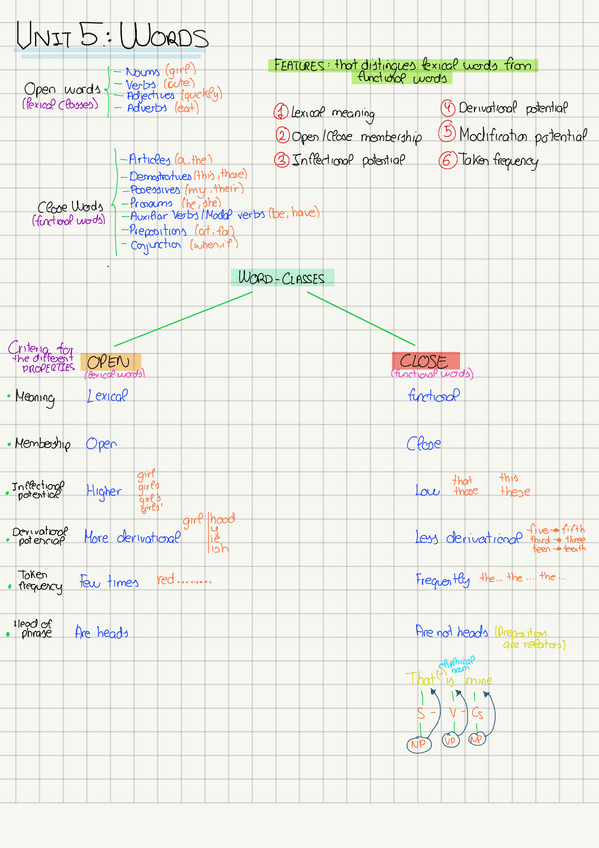 UNIT 5: WORDS
Open words
(lexical classes)
- Nouns (girl)
- Verbs (cute)
- Adjectives (quickly)
- Adverbs (eat)
FEATURES: that distingues lexical words from
functional words
① Lexical meaning
② Open/Close membership
③ Inflectional potential
④ Derivational potential
⑤ Modification potential
⑥ Token frequency
Close Words
(functional words)
- Articles (a, the)
- Demostratives (this, those)
- Possessives (my, their)
- Pronouns (he, she)
- Auxiliar Verbs/Modal verbs (be, have)
- Prepositions (at, for)
- Conjunction (when, if)
WORD-CLASSES
Criteria for
the different
PROPERTIES
OPEN
(lexical words)
CLOSE
(functional words)
• Meaning
Lexical
functional
• Membership
Open
Close
• Inflectional
potential
Higher
girl
girls
girl's
girls'
Low
that
those
this
these
• Derivational
potencial
More derivational
girl
hood
y
ie
ish
Less derivational
five → fifth
third → three
teen → teenth
• Token
frequency
Few times
red.........
Frequently
the.. the ... the ...
• Head of
phrase
Are heads
Are not heads
(Preposition
are relators)
noun
That (-) is mine
S - V - Cs
NP
VP
NP